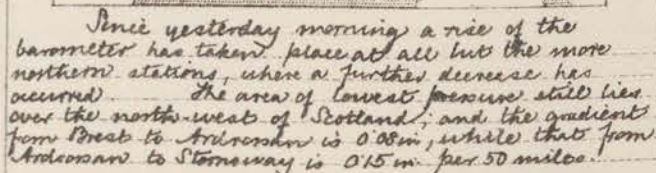 Since yesterday morning a rise of the
barometer has taken place at all but the more
northern stations, where a further decrease has
occurred. The area of lowest pressure still lies
over the north-west of Scotland; and the gradient
from Brest to Ardrossan is 0.08 in, while that from
Ardrossan to Stornoway is 0.15 in per 50 miles.